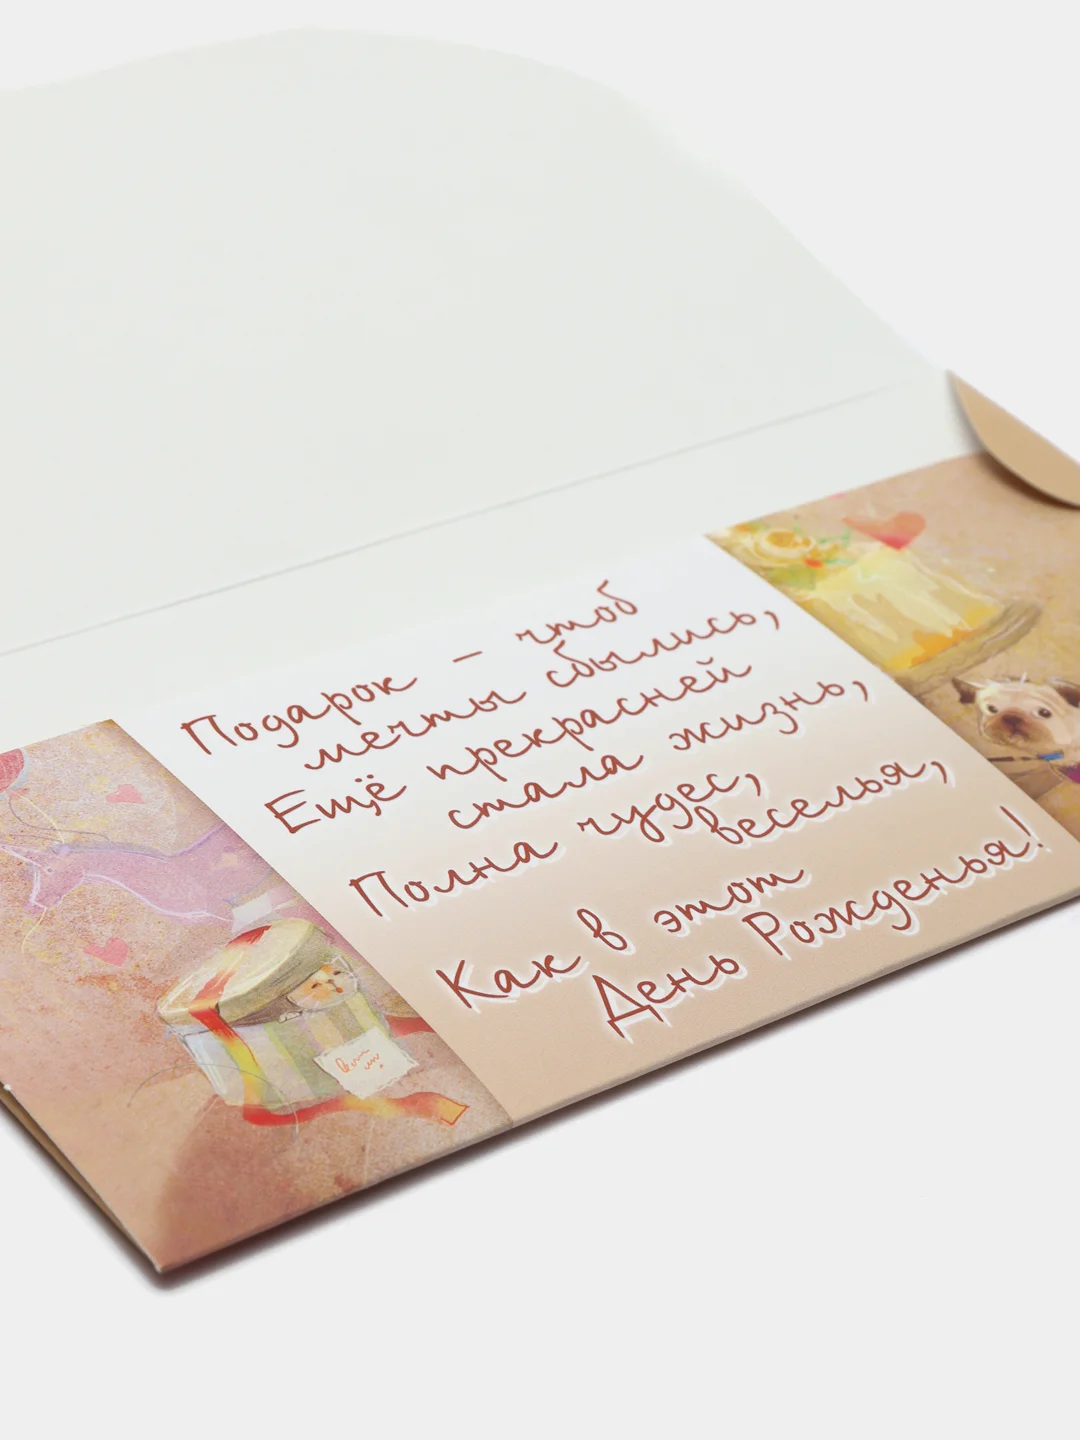 Подарок – чтоб
мечты сбылись,
Ещё прекрасней
стала жизнь,
Полна чудес,
веселья,
Как в этот
День Рожденья!